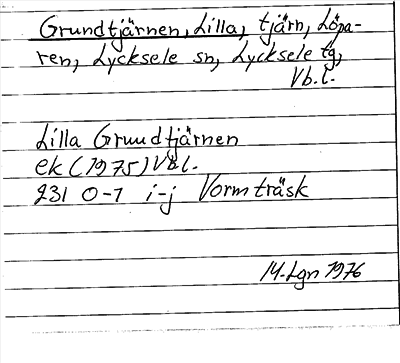 Grundtjärnen, Lilla, tjärn, Löpa-
ren, Lycksele sn, Lycksele tg,
Vb.l.
Lilla Grundtjärnen
ek (1975) Vbl.
231 0-1 i-j Vormträsk
M. Lgn 1976